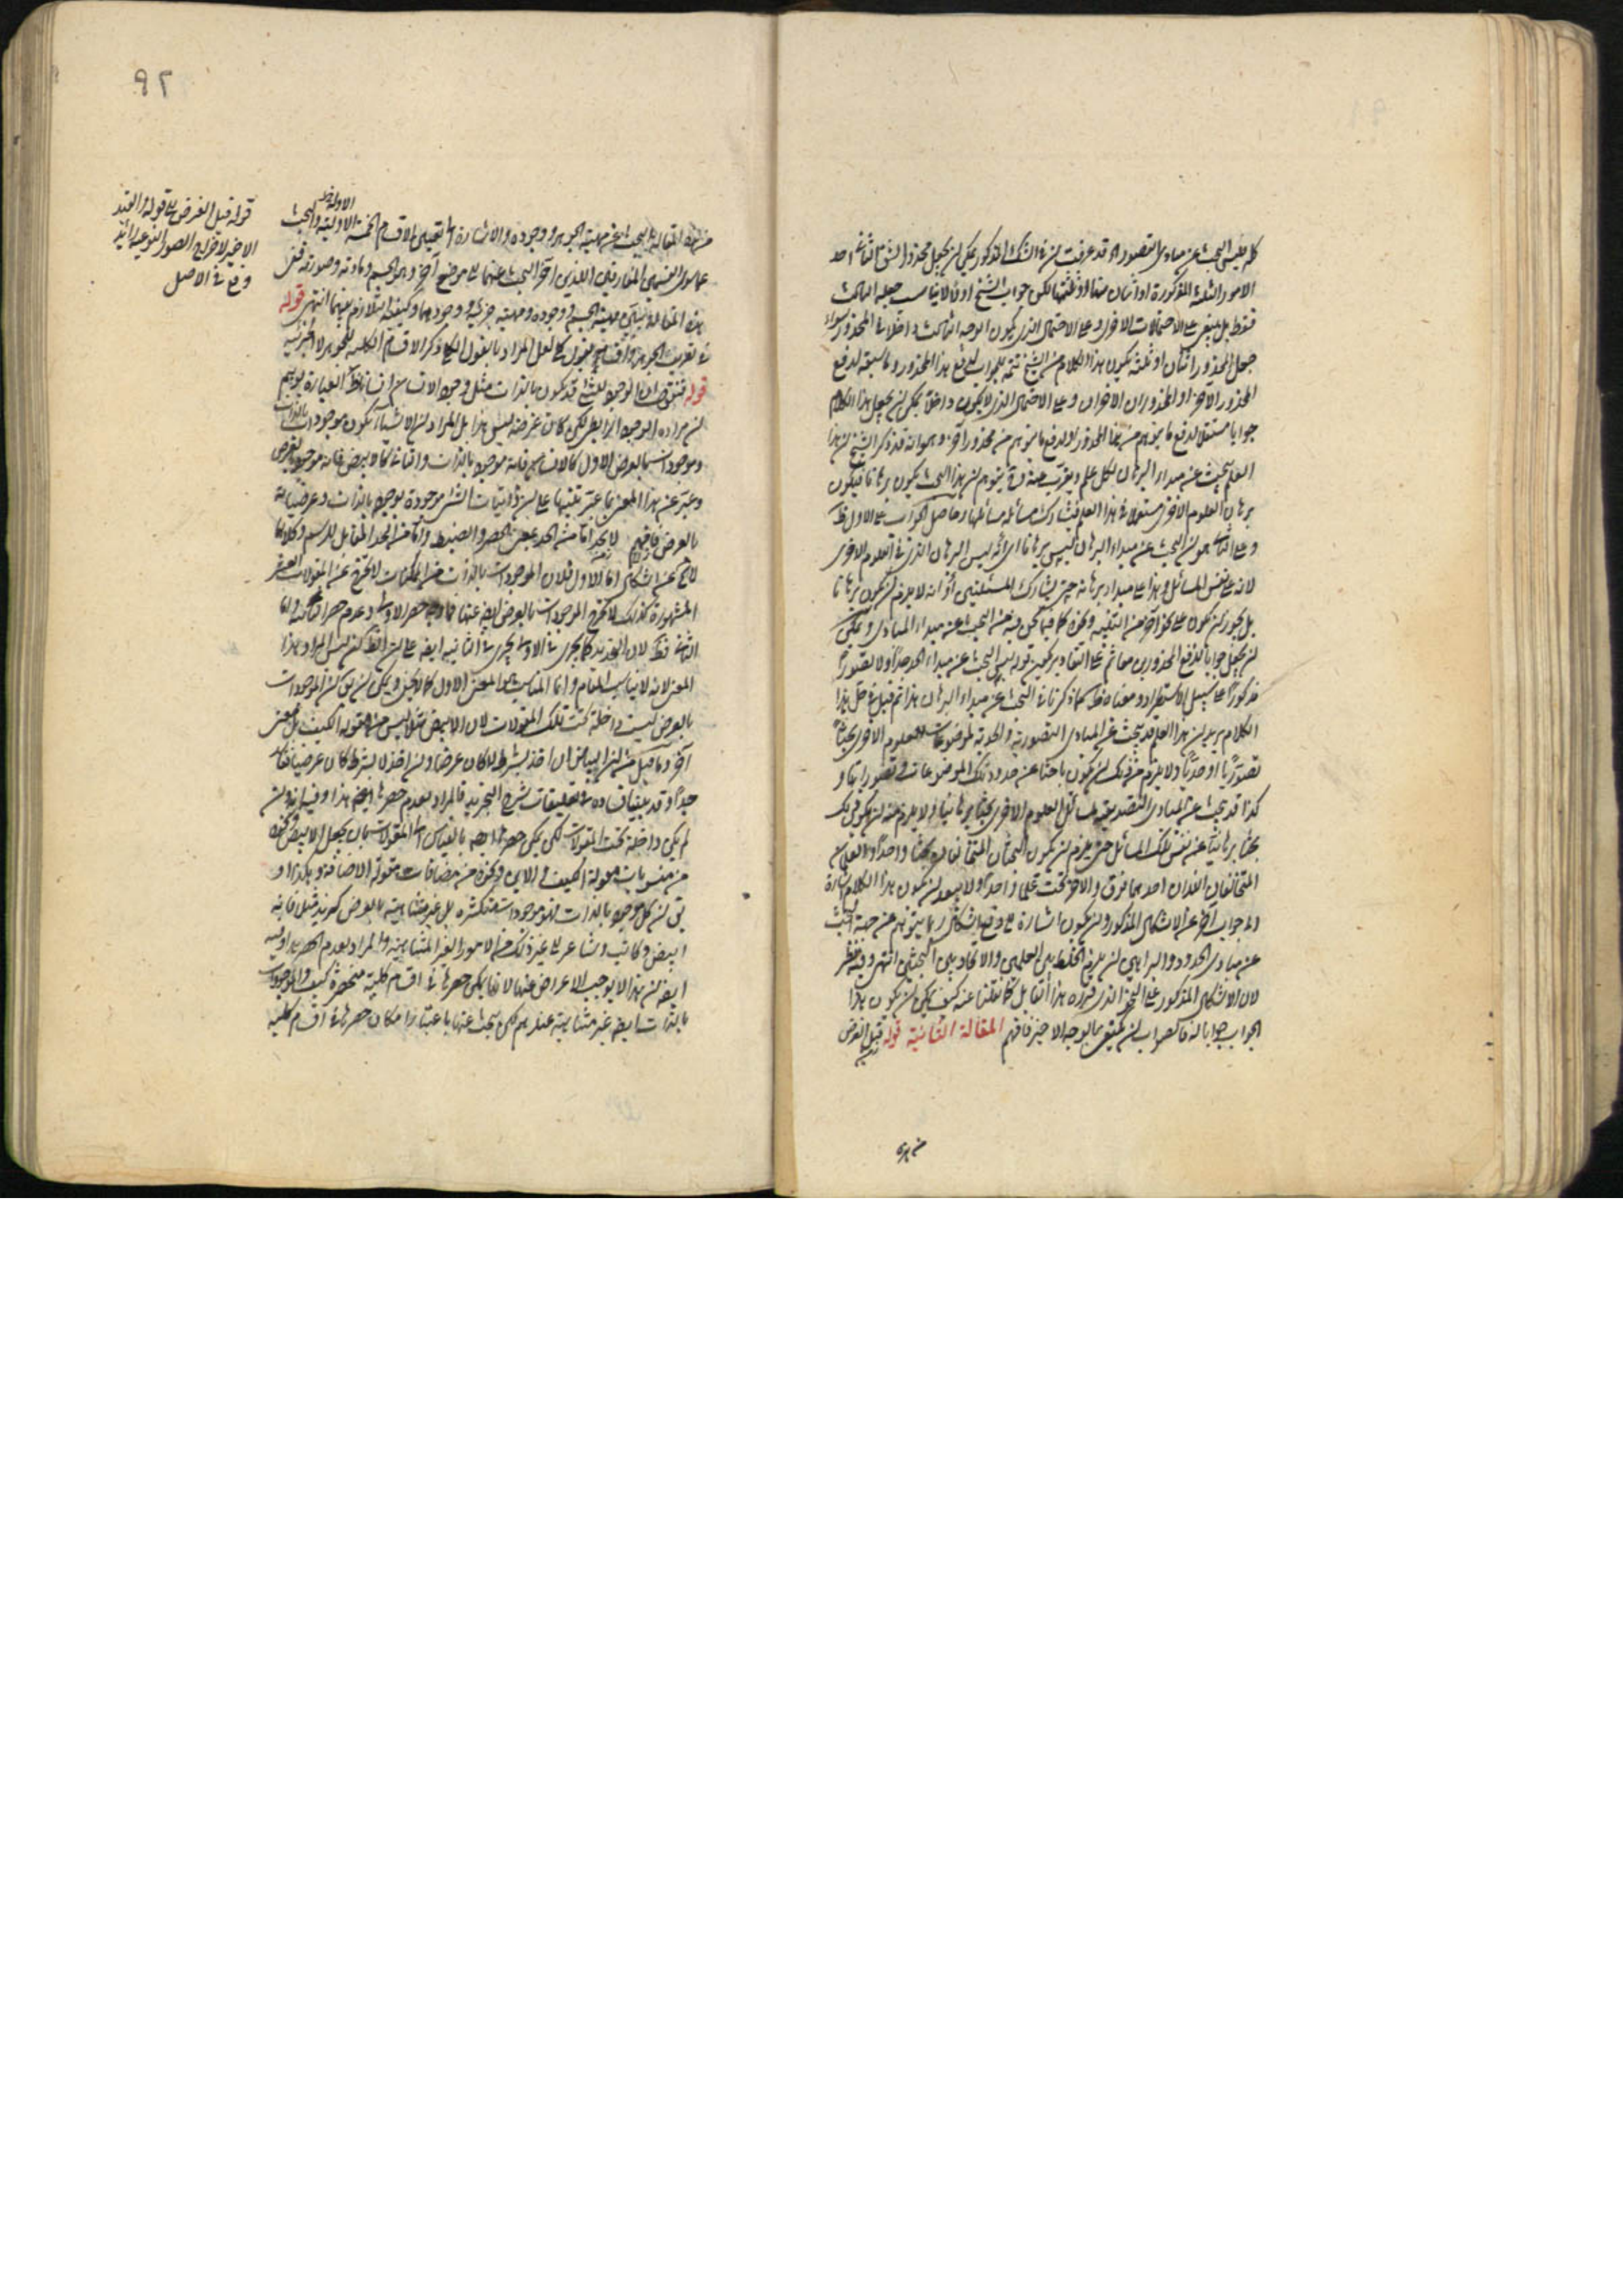 كله ليس البحث عن مبادى التصور اه قد عرفت ان فى الشك المذكور يمكن ان يجعل محذور الشق الثانى احد
الامور الثلثة المذكورة او اثنان منها او ثلثتها لكن جواب الشيخ اولا لا يناسب جعله الثالث
فقط بل ينبغى على الاحتمالات الاخرى وعلى الاحتمال الذى يكون الوجه الثالث داخلا فى المحذور سواء
جعل المحذور اثنان او ثلثة يكون هذا الكلام من الشيخ تتمة للجواب لدفع هذا المحذور وما سبقه لدفع
المحذور الآخر او المحذوران الاخران وعلى الاحتمال الذى لا يكون داخلا يمكن ان يجعل هذا الكلام
جوابا مستقلا لدفع ما يتوهم من هذا المحذور او لدفع ما يتوهم من محذور آخر وهو انه قد ذكر الشيخ ان هذا
العلم يبحث عن مبداء البرهان لكل علم
برهان العلوم الاخرى مسئولا فى هذا العلم فتشارك مسائله مسائلها وحاصل الجواب على الاول ظ
وعلى الثانى هو ان البحث عن مبداء البرهان ليس برهانا اى انه ليس البرهان الذى فى العلوم الاخرى
لانه على نفس المسائل وهذا على مبداء برهانه حتى يشارك المسئلتين او انه لا يلزم ان يكون برهانا
بل يجوز ان يكون على نحو آخر من التنبيه ونحوه كما فيما نحن فيه من البحث عن مبداء المبادى ويمكن
ان يجعل جوابا لدفع المحذورين معا
مذكورا على سبيل الاستطراد ومعناه ظ كما ذكرنا فى البحث عن مبداء البرهان هذا ثم قيل فى حل هذا
الكلام يريد ان هذا العلم قد يبحث عن المبادى التصورية والحدية لموضوعات العلوم الاخرى بحثا
تصوريا او حديا ولا يلزم من ذلك ان يكون باحثا عن حدود تلك الموضوعات وتصوراتها و
كذا قد يبحث عن المبادى التصديقية لمسائل العلوم الاخرى بحثا برهانيا ولا يلزم منه ان يكون ذلك
بحثا برهانيا عن نفس تلك المسائل حتى يلزم ان يكون البحثان المتخالفان بحثا واحدا والعلمان
المتخالفان اللذان احدهما فوق والاخر تحت علما واحدا ولا يبعد ان يكون هذا الكلام اشارة
الى جواب آخر عن الاشكال المذكور وان يكون اشارة الى دفع اشكال ربما يتوهم من جهة البحث
عن مبادى الحدود والبراهين ان يلزم الخلط بين العلمين والاتحاد بين البحثين انتهى وفيه نظر
لان الاشكال المذكور على النحو الذى قرره هذا القائل كما نقلنا عنه كيف يمكن ان يكون هذا
الجواب جوابا له فالصواب ان يكتفى بالوجه الاخير فافهم المقالة الثانية قوله قبل الغرض
من هذه
٩٢
من هذه المقالة البحث عن مهية الجوهر ووجوده والاشارة الى تعيين الاقسام الخمسة الاولية والبحث
الاولية ظ
عما سوى القسمين المفارقين اللذين اخر البحث عنهما الى موضع آخر وهو الجسم ومادته وصورته ففى
هذه المقالة يتبين مهية الجسم ووجوده ومهية جزئيه ووجودهما وكيفية التلازم بينهما انتهى قوله
فى تعريف الجوهر واقسامه بقول كلى لعل المراد بالقول الكلى ذكر الاقسام الكلية للجوهر لا الجزئية
قوله فنقول ان الوجود للشئ قد يكون بالذات مثل وجود الانسان انسانا ظ العبارة يوهم
ان مراده الوجود الرابطى لكن كان غرضه ليس هذا بل المراد ان الاشياء تكون موجودات بالذات
وموجودات بالعرض الاول كالانسان فانه موجود بالذات والثانى كالابيض فانه موجود بالعرض
وعبر عن هذا المعنى بما عبر تنبيها على ان ذاتيات الشئ موجودة بوجوده بالذات وعرضياته
بالعرض فافهم
لا يخ عن اشكال اما الاول فلان الموجودات بالذات من الممكنات لا يخرج عن المقولات العشر
المشهورة كذلك لا يخرج الموجودات بالعرض ايضا عنها فما وجه حصر الاولى وعدم حصر الثانية واما
الثانى فظ لان التحديد كما يجرى فى الاولى يجرى فى الثانية ايضا على ان الظ انه ليس المراد هذا
المعنى لانه لا يناسب المقام وانما المناسب هو المعنى الاول كما لا يخفى ويمكن ان يق ان الموجودات
بالعرض ليست داخلة تحت تلك المقولات لان الابيض مثلا ليس من مقولة الكيف بل معنى
آخر وما قيل من ان البياض ان اخذ بشرط لا كان عرضا وان اخذ لا بشرط كان عرضيا فاسد
جدا وقد بينا فساده فى تعليقات شرح التجريد فالمراد بعدم حصرها ايضا هذا وفيه انه وان
لم يكن داخلة تحت المقولات لكن يمكن حصرها ايضا بالقياس الى المقولات بان يجعل الابيض ونحوه
من منسوبات مقولة الكيف والابن ونحوه من مضافات مقولة الاضافة وهكذا او
يق ان كل موجود بالذات له موجودات متكثرة بل غير متناهية بالعرض كزيد مثلا فانه
ابيض وكاتب وشاعر الى غير ذلك من الامور الغير المتناهية والمراد بعدم الحصر هذا وفيه
ايضا ان هذا لا يوجب الاعراض عنها لانها يمكن حصرها فى اقسام كلية منحصرة كيف والموجودات
بالذات ايضا غير متناهية عندهم لكن يبحث عنها باعتبار امكان حصرها فى اقسام كلية
قوله قبل الغرض الى قوله والقيد
الاخير لاخراج الصور النوعية زائد
وقع فى الاصل